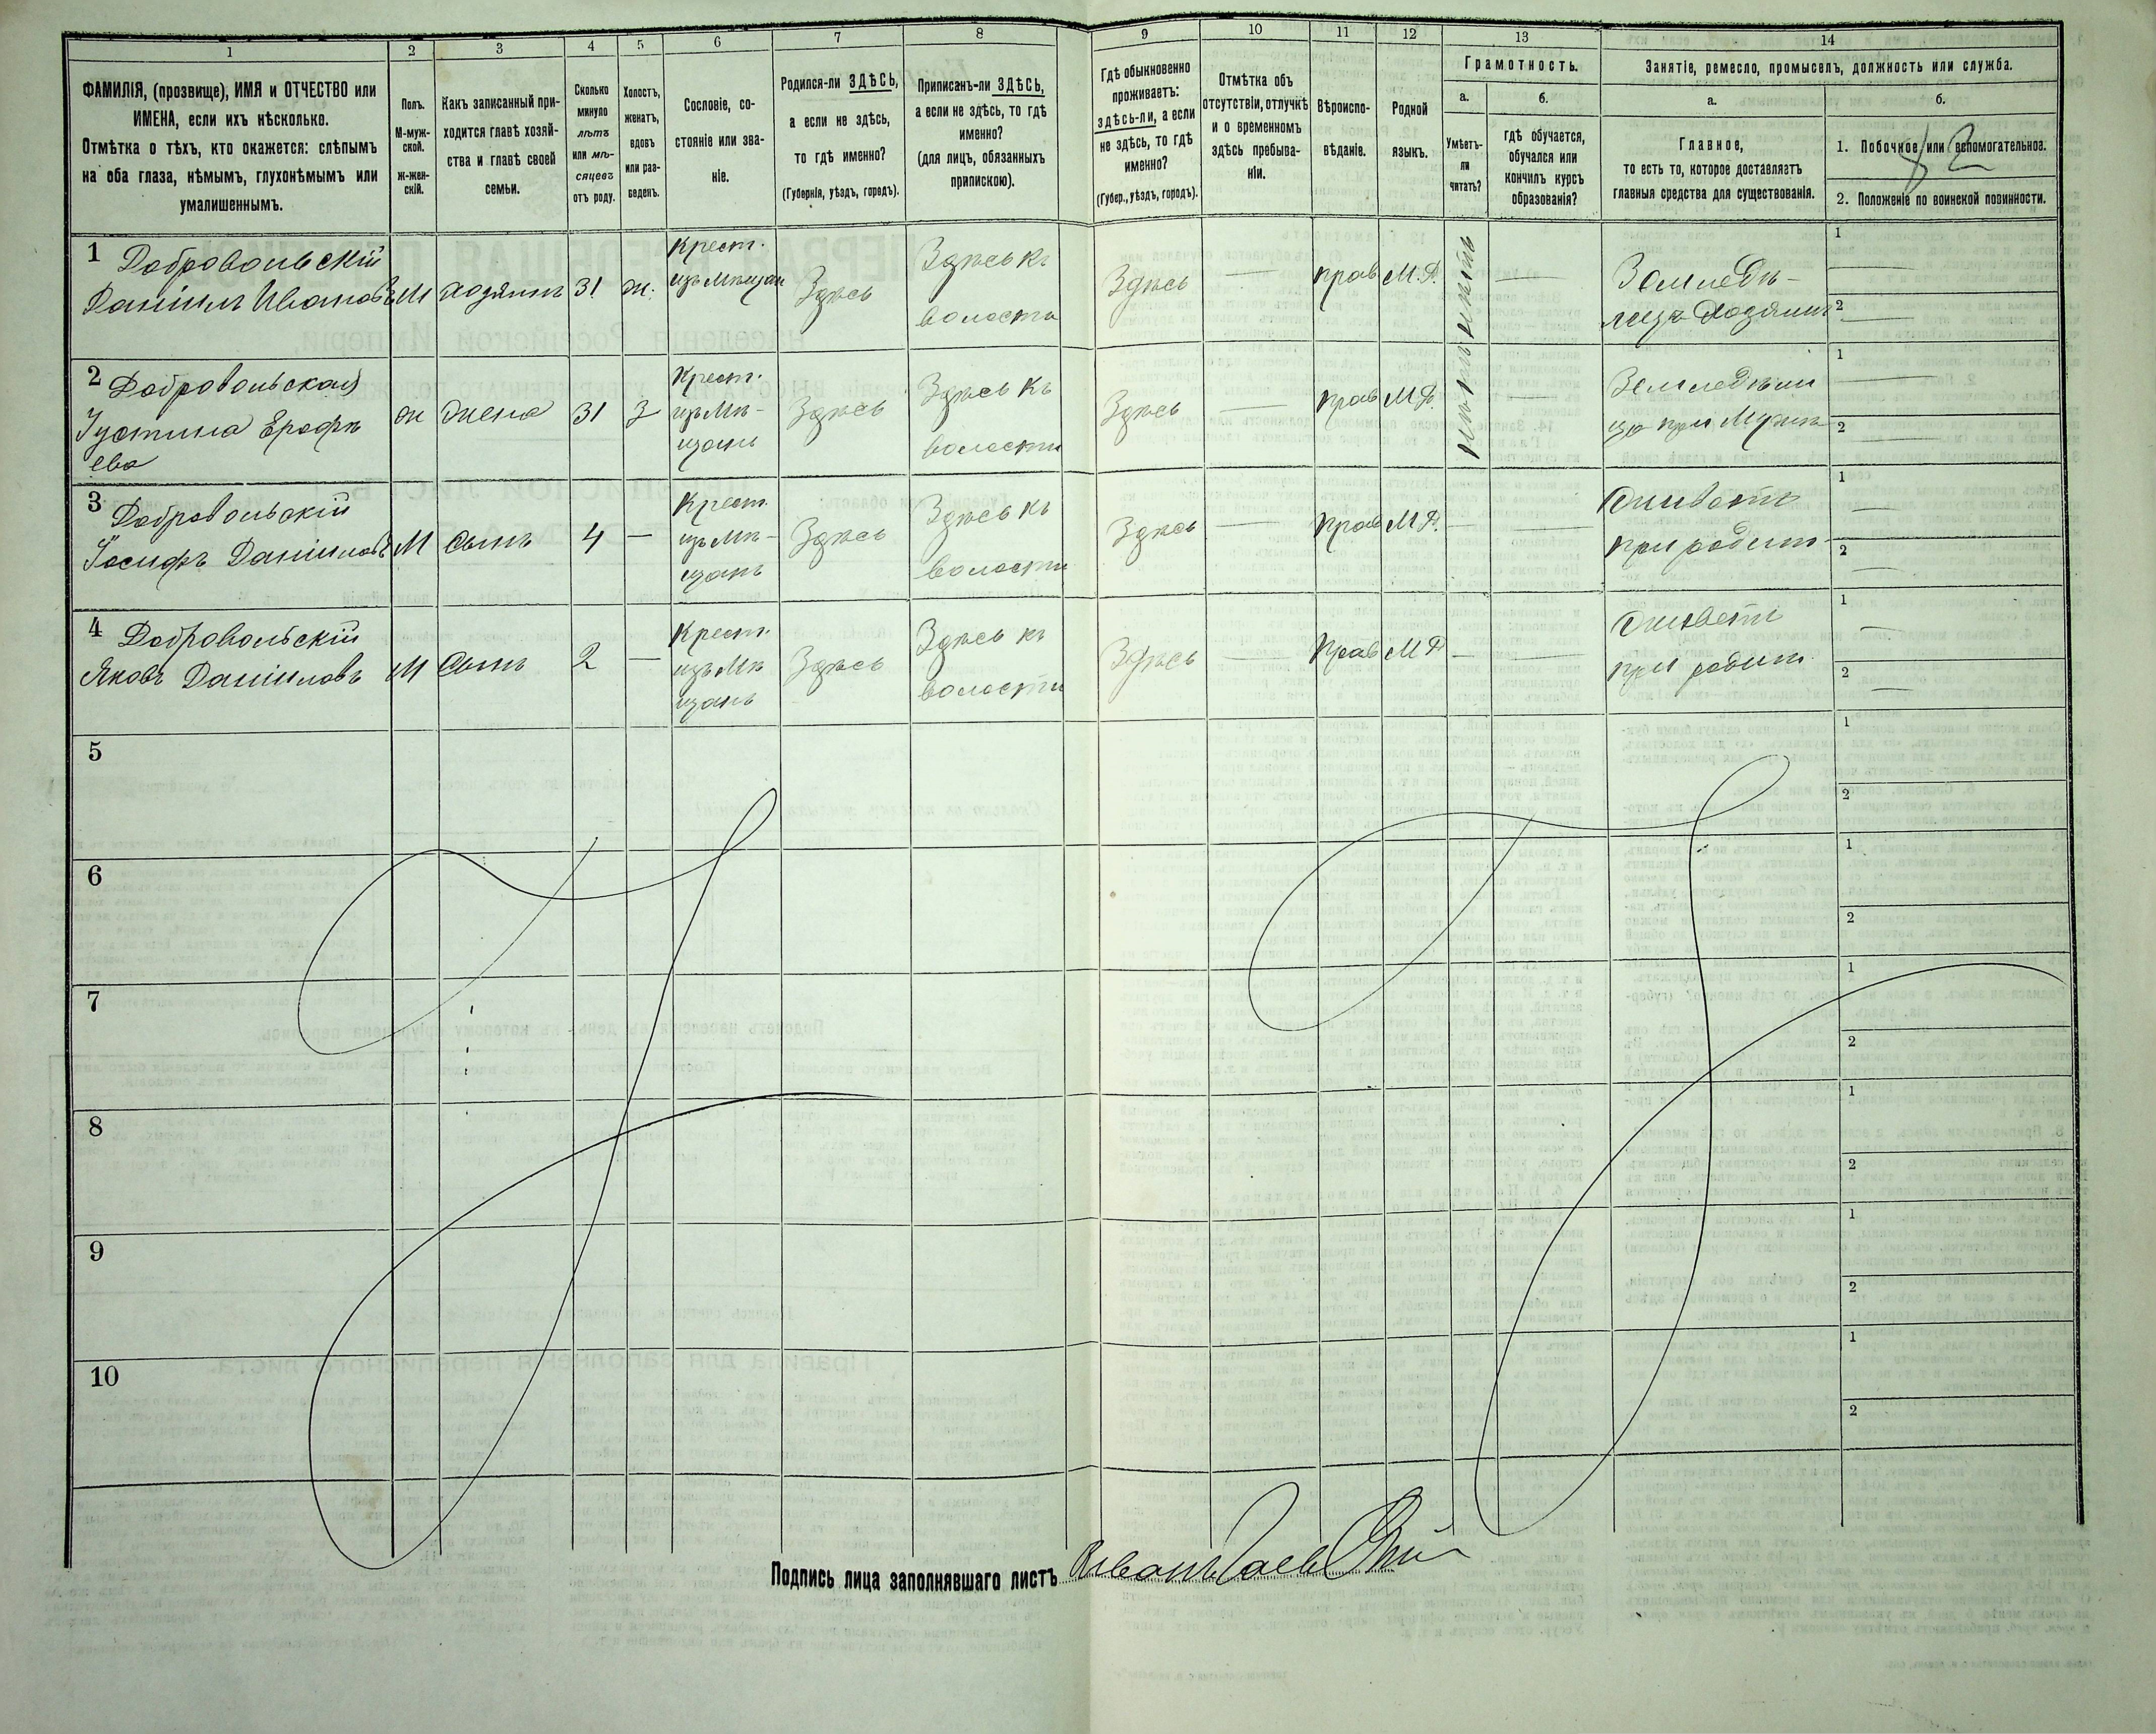 1 2 3 4 5 6 7 8 9 10 11 12 13 14
ФАМИЛІЯ, (прозвище), ИМЯ и ОТЧЕСТВО или
ИМЕНА, если ихъ нѣсколько.
Отмѣтка о тѣхъ, кто окажется: слѣпымъ
на оба глаза, нѣмымъ, глухонѣмымъ или
умалишеннымъ.
Полъ.
М-муж-
ской.
Ж-жен-
скій.
Какъ записанный при-
ходится главѣ хозяй-
ства и главѣ своей
семьи.
Сколько
минуло
лѣтъ
или мѣ-
сяцевъ
отъ роду.
Холостъ,
женатъ,
вдовъ
или раз-
веденъ.
Сословіе, со-
стояніе или зва-
ніе.
Родился-ли ЗДѢСЬ,
а если не здѣсь,
то гдѣ именно?
(Губернія, уѣздъ, городъ).
Приписанъ-ли ЗДѢСЬ,
а если не здѣсь, то гдѣ
именно?
(для лицъ, обязанныхъ
припискою).
Гдѣ обыкновенно
проживаетъ:
здѣсь-ли, а если
не здѣсь, то гдѣ
именно?
(Губер., уѣздъ, городъ).
Отмѣтка объ
отсутствіи, отлучкѣ
и о временномъ
здѣсь пребыва-
ніи.
Вѣроиспо-
вѣданіе.
Родной
языкъ.
Грамотность.
а.
Умѣетъ-
ли
читать?
б.
гдѣ обучается,
обучался или
кончилъ курсъ
образованія?
Занятіе, ремесло, промыселъ, должность или служба.
а.
Главное,
то есть то, которое доставляетъ
главныя средства для существованія.
б.
1. Побочное или вспомогательное.
2. Положеніе по воинской повинности.
1 Добровольскій
Даніилъ Ивановъ
М хозяинъ 31 ж.
Крест.
изъ Мѣщан
Здѣсь
Здѣсь къ
волости
Здѣсь — прав М.Р. нѣтъ —
Земледѣ-
лецъ Хозяинъ
1 —
2 —
2 Добровольская
Іустина Ерофѣ
ева
ж жена 31 З
Крест.
изъ Мѣ-
щанъ
Здѣсь
Здѣсь къ
волости
Здѣсь — прав М.Р. нѣтъ —
Земледѣли
ца при Мужѣ
1 —
2 —
3 Добровольскій
Іосифъ Даніиловъ
М сынъ 4 —
Крест.
изъ Мѣ-
щанъ
Здѣсь
Здѣсь къ
волости
Здѣсь — прав М.Р. — —
Живетъ
при родит
1 —
2 —
4 Добровольскій
Яковъ Даніиловъ
М сынъ 2 —
Крест.
изъ Мѣ
щанъ
Здѣсь
Здѣсь къ
волости
Здѣсь — Прав М Р — —
Живетъ
при родит.
1 —
2 —
5
1
2
6
1
2
7
1
2
8
1
2
9
1
2
10
1
2
Подпись лица заполнявшаго листъ Иванъ